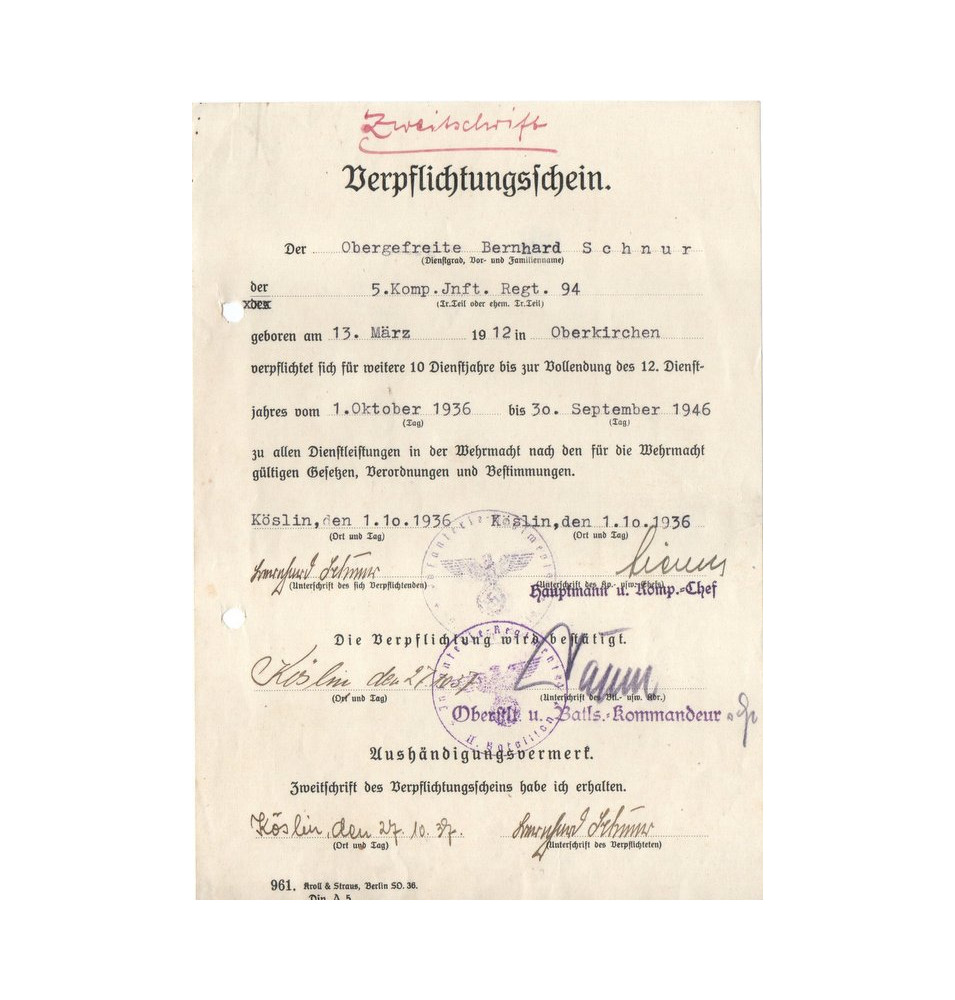 Zweitschrift
Verpflichtungsschein.
Der Obergefreite Bernhard Schnur
(Dienstgrad, Vor- und Familienname)
der 5.Komp.Jnft. Regt. 94
xdex
(Tr.Teil oder ehem. Tr.Teil)
geboren am 13. März 1912 in Oberkirchen
verpflichtet sich für weitere 10 Dienstjahre bis zur Vollendung des 12. Dienst-
jahres vom 1.Oktober 1936 bis 3o. September 1946
(Tag) (Tag)
zu allen Dienstleistungen in der Wehrmacht nach den für die Wehrmacht
gültigen Gesetzen, Verordnungen und Bestimmungen.
Köslin,den 1.1o.1936 Köslin,den 1.1o.1936
(Ort und Tag) (Ort und Tag)
Bernhard Schnur
(Unterschrift des sich Verpflichtenden) (Unterschrift des Kp.- usw. Chefs)
Hauptmann u. Komp.-Chef
Die Verpflichtung wird bestätigt.
Köslin den 27.10.37
(Ort und Tag) (Unterschrift des Btl.- usw. Kdr.)
Oberstlt. u. Batls.-Kommandeur
Aushändigungsvermerk.
Zweitschrift des Verpflichtungsscheins habe ich erhalten.
Köslin, den 27. 10. 37. Bernhard Schnur
(Ort und Tag) (Unterschrift des Verpflichteten)
961. Kroll & Straus, Berlin SO. 36.
Din A 5